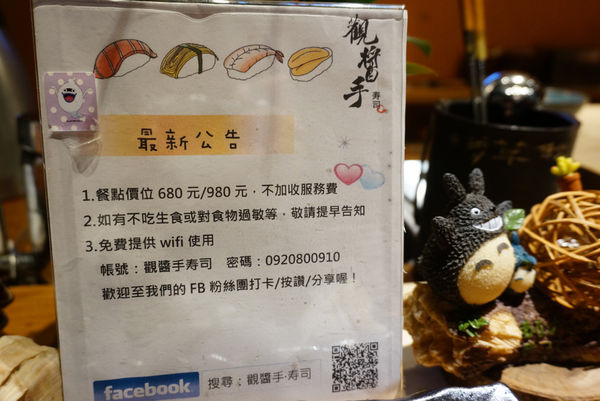 觀醬手
寿司
最新公告
1.餐點價位 680 元/980 元，不加收服務費
2.如有不吃生食或對食物過敏等，敬請提早告知
3.免費提供 wifi 使用
帳號：觀醬手寿司 密碼：0920800910
歡迎至我們的 FB 粉絲團打卡/按讚/分享喔！
facebook 搜尋：觀醬手·寿司